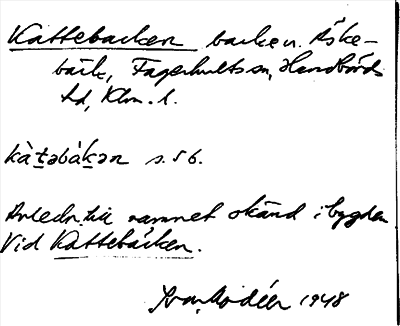 Kattebacken backen. Åske-
bäck, Fagerhults sn, Handbörds
hd, Klm. l.
kàt̲əbák̲ən s. 56.
Anledn. till namnet okänd i bygden
Vid Kattebäcken.
Ivar Modéer 1948